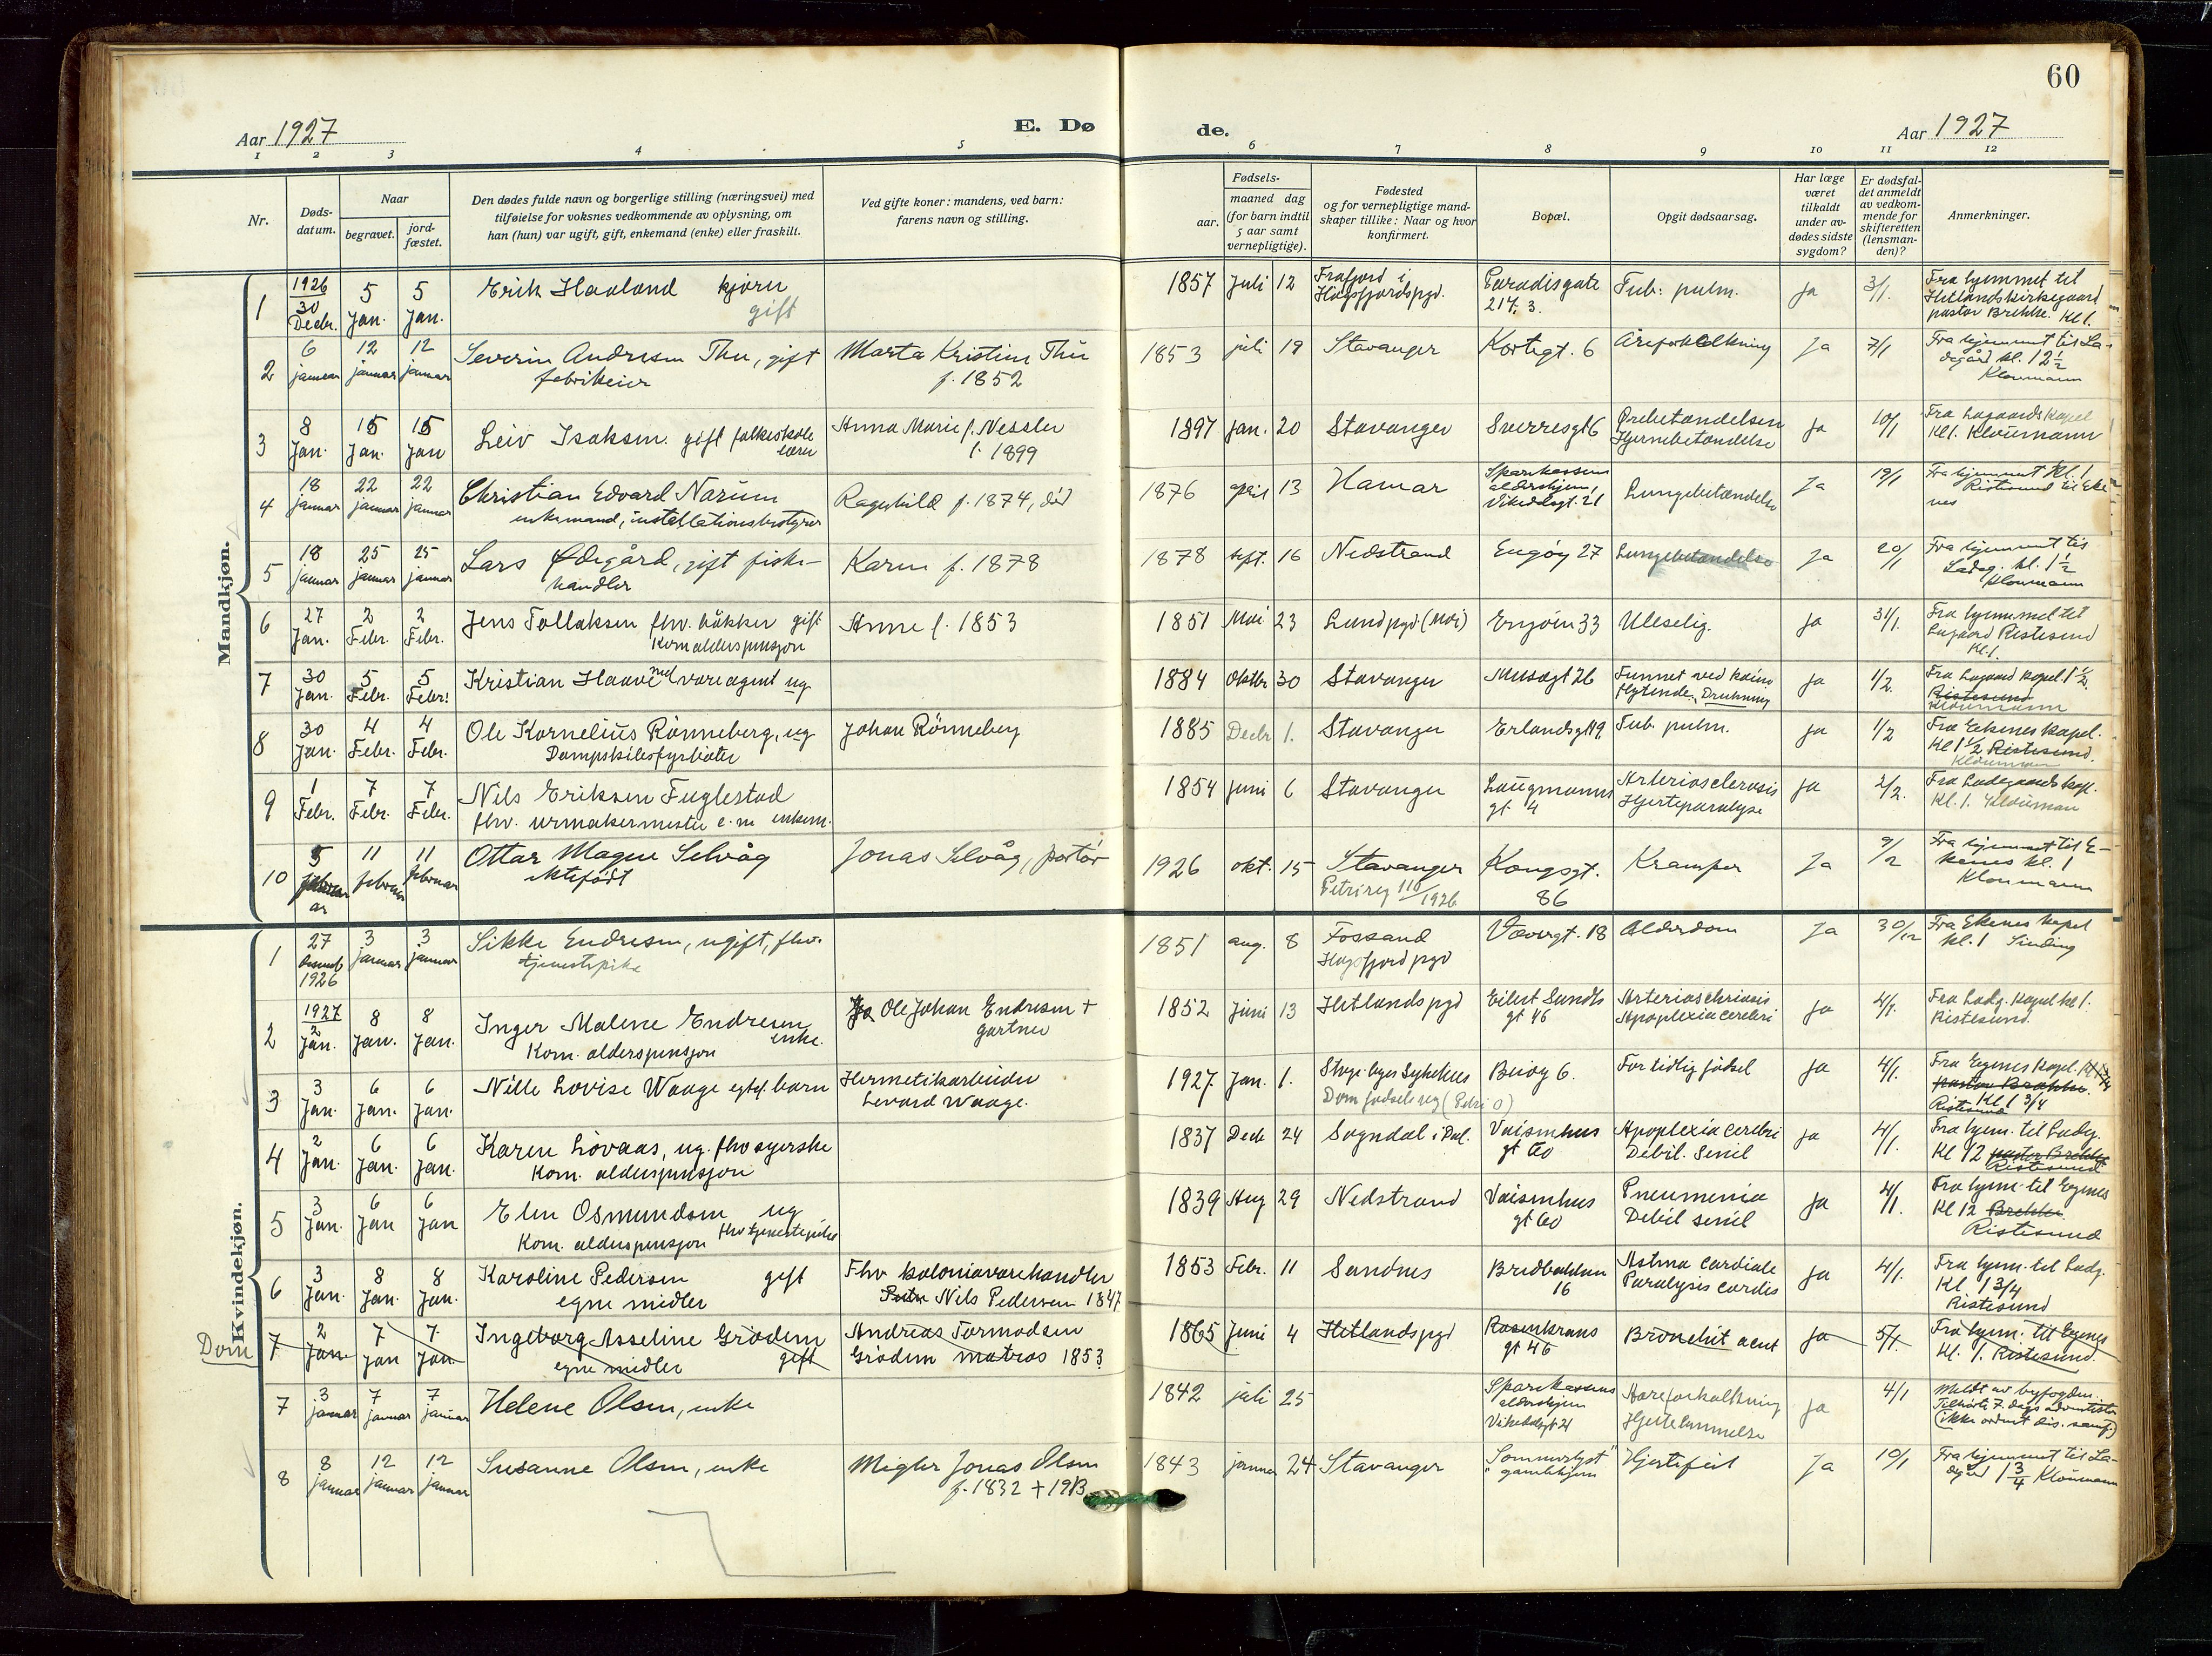 60
Aar 1927
E. Dø
de.
Aar 1927
1 2 3 4 5 6 7 8 9 10 11 12
Nr.
Døds-
datum.
Naar
begravet.
jord-
fæstet.
Den dødes fulde navn og borgerlige stilling (næringsvei) med
tilføielse for voksnes vedkommende av oplysning, om
han (hun) var ugift, gift, enkemand (enke) eller fraskilt.
Ved gifte koner: mandens, ved barn:
farens navn og stilling.
Fødsels-
aar.
maaned dag
(for barn indtil
5 aar samt
vernepligtige).
Fødested
og for vernepligtige mand-
skaper tillike: Naar og hvor
konfirmert.
Bopæl.
Opgit dødsaarsag.
Har læge
været
tilkaldt
under av-
dødes sidste
sygdom?
Er dødsfal-
det anmeldt
av vedkom-
mende for
skifteretten
(lensman-
den)?
Anmerkninger.
Mandkjøn.
1 1926 30 Decbr. 5 Jan. 5 Jan. Erik Haaland kjører
gift
1857 Juli 12 Frafjord i
Høgsfjordspgd. Paradisgate
21 Tub: pulm. ja 3/1. Fra hjemmet til
Hetlandskirkegaard
pastor Brekke. Kl 1.
2 6 januar 12 januar 12 januar Severin Andresen Thu, gift
fabrikeier
Marta Kristine Thu
f. 1852
1853 juli 19 Stavanger Kortegt. 6 Åreforkalkning Ja 7/1 Fra hjemmet til La-
degård kl. 12 1/2
Kloumann
3 8 Jan. 15 Jan. 15 Jan Leiv Isaksen. gift folkeskole
lærer
Anna Marie f. Nessler
f. 1899
1897 Jan. 20 Stavanger Sverresgt 6 Ørebetændelsen
Hjernebetændelse ja 10/1 Fra Lagaards Kapel
Kl 1. Kloumann
4 18 januar 22 januar 22 januar Christian Edvard Narum
enkemand, installationsbestyrer
Ragnhild f. 1874, död
1876 april 13 Hamar Sparekassens
aldershjem,
Vikedalsgt. 21 Lungebetændelse Ja 19/1 Fra hjemmet kl. 1
Ristesund til Eke
nes
5 18 januar 25 januar 25 januar Lars Ødegård, gift fiske-
handler
Karen f. 1878
1878 sept. 16 Nedstrand Engøy 27 Lungebetændelse Ja 20/1 Fra hjemmet til
Ladeg. kl. 1 1/2
Kloumann
6 27 Jan. 2 Febr. 2 Febr. Jens Tollaksen fhv. bökker gift
Kom alderspensjon
Anne f. 1853
1851 Mai 23 Lund pgd (Moi) Engöin 33 Uleselig. ja 31/1. Fra hjemmet til
Lagaard Ristesund
Kl 1.
7 30 Jan. 5 Febr. 5 Febr. Kristian Haaven vareagent ug
1884 Oktbr 30 Stavanger Musegt 26 Funnet ved kaien
flytende. Drukning ja 1/2. Fra Lagaard kapel 1 1/2.
Ristesund
Kloumann
8 30 Jan. 4 Febr. 4 Febr. Ole Kornelius Rönneberg, ug
Dampskibsfyrböter
Johan Rönneberg
1885 Decbr 1. Stavanger Erlandsgt 19. Tub. pulm. ja 1/2 Fra Ekenes kapel.
Kl 1 1/2 Ristesund.
Kloumann
9 1 Febr. 7 Febr. 7 Febr. Nils Eriksen Fuglestad
fhv. urmakermester e. m enkem.
1854 Juni 6 Stavanger Laugmanns
gt 4 Arteriosclerosis
Hjerteparalyse ja 2/2. Fra Ladegaards kapl.
Kl. 1. Klouman
10 5 februar 11 februar 11 februar Ottar Magne Selvåg
ektefödt
Jonas Selvåg, portör
1926 okt. 15 Stavanger
Petri reg 110/1926 Kongsgt.
86 Kramper Ja 9/2 Fra hjemmet til E-
kenes kl. 1
Kloumann
Kvindekjøn.
1 27 desemb 1926 3 januar 3 januar Sikke Endresen, ugift, fhv.
tjenestepike
1851 aug. 8 Fossand
Høgsfjord pgd Vævergt. 18 Alderdom Ja 30/12 Fra Ekenes kapel
kl. 1 Sinding
2 1927 2 Jan. 8 Jan. 8 Jan. Inger Malene Endresen
enke.
Kom. alderspensjon
Ole Johan Endresen +
gartner
1852 Juni 13 Hetlands pgd Eilert Sundts
gt 46
Apoplexia cerebri ja 4/1. Fra Ladg. Kapel kl 1.
Ristesund.
3 3 Jan. 6 Jan. 6 Jan. Nille Lovise Waage egtef. barn
Hermetikarbeider
Levard Waage.
1927 Jan. 1. Stvgr. byes Sykehus
Dom fødsels reg (Petri 0) Buøy 6. For tidlig födsel ja 4/1. Fra Egenes kapel.
pastor Brekke.
Kl 1 3/4
Ristesund
4 2 Jan. 6 Jan. 6 Jan. Karen Lövaas, ug. fhv syerske
Kom. alderspensjon
1837 Decb 24 Sogndal i Dal. Vaisenhus
gt 60 Apoplexia cerebri
Debil. Senil ja 4/1. Fra hjem. til Ladg.
Kl 12 pastor Brekke
Ristesund
5 3 Jan. 6 Jan. 6 Jan Elen Osmundsen ug
Kom. alderspensjon fhv tjenestepike
1839 Aug 29 Nedstrand Vaisenhus
gt 60 Pneumonia
Debil senil ja 4/1. Fra hjem. til Egenes
Kl 12 Brekke.
Ristesund
6 3 Jan. 8 Jan. 8 Jan. Karoline Pedersen gift
egne midler
Fhv kolonialvarehandler
Nils Pedersen 1847
1853 Febr. 11 Sandnes Bredbakken
16 Astma cardiale
Paralysis cordis ja 4/1. Fra hjem. til Ladg.
Kl. 1 3/4
Ristesund
Dom 7 2 Jan 7 Jan 7 Jan. Ingeborg Asseline Grödem
gift
egne midler
Andreas Tormodsen
Grödem matros 1853
1865 Juni 4 Hetlands pgd Rosenkrans
gt 46 Bronchit acut ja 5/1. Fra hjem. til Egenes
Kl. 1. Ristesund.
7 3 januar 7 januar 7 januar Helene Olsen, enke
1842 juli 25 Sparekassens
aldershjem
Vikedalsgt 21 Aareforkalkning
Hjertelammelse ja 4/1 Meldt av byfogden.
Tilhörte 7. dags adventister
(ikke ordnet dis. samf.)
8 8 januar 12 januar 12 januar Susanne Olsen, enke
Megler Jonas Olsen
f. 1832 + 1913
1843 januar 24 Stavanger "Sommerlyst"
gamlehjem Hjertefeil Ja 10/1 Fra hjemmet til La-
degård 1 3/4 Kloumann